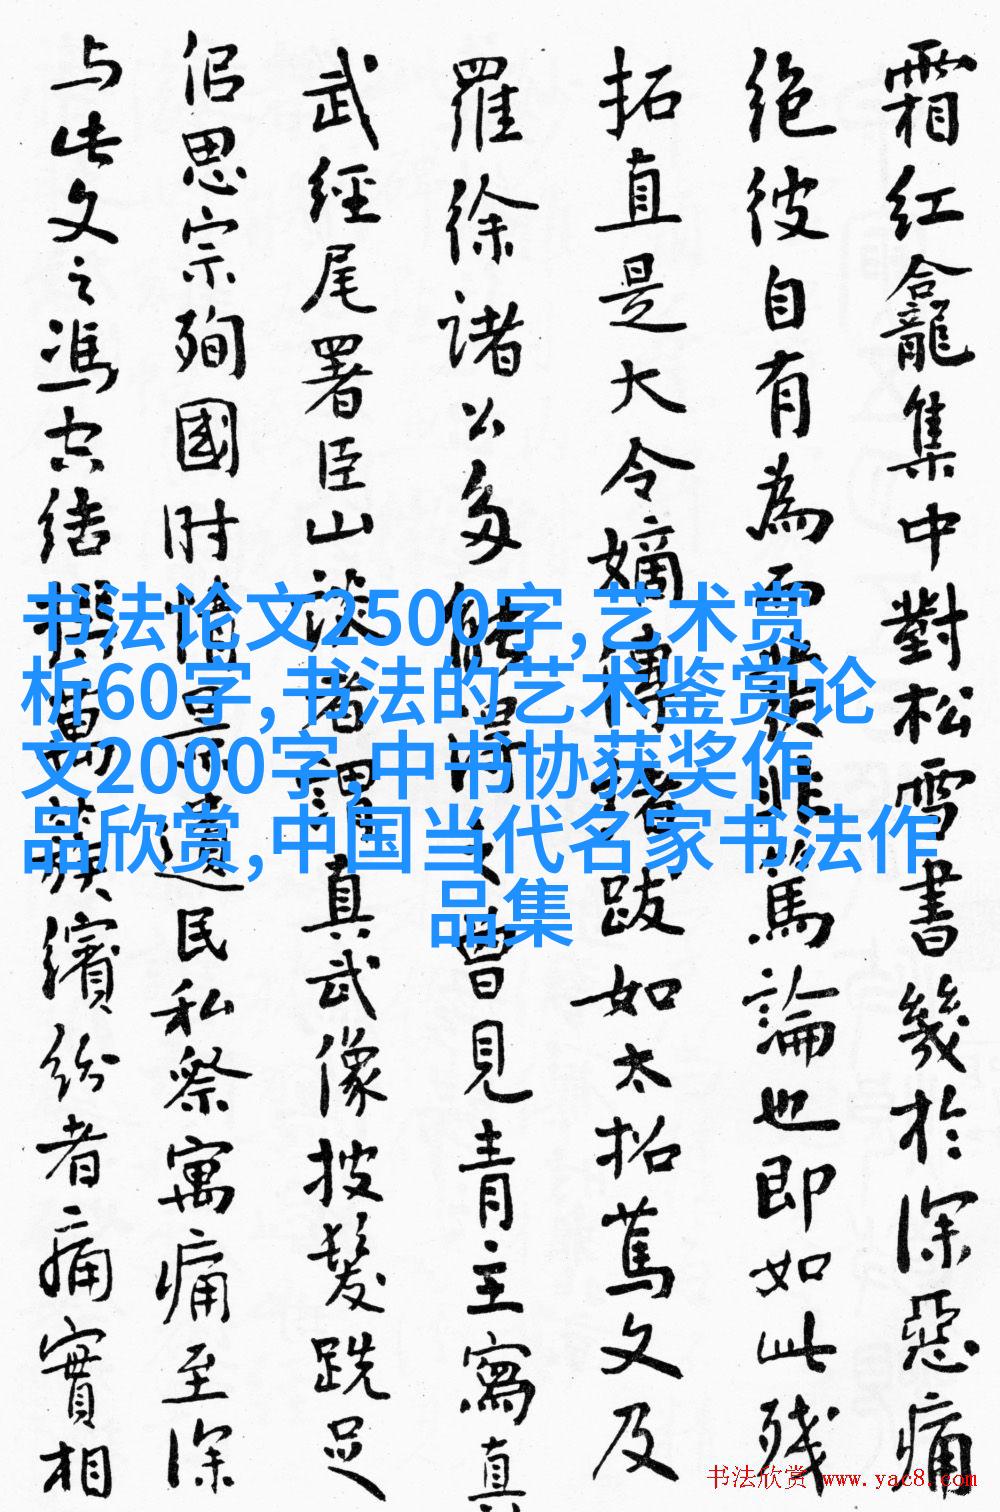 霜红龕集中對松雪書幾於深惡痛
绝彼自有為而發非篤論也即如此残
拓直是大令嫡傳諸跋如太拓篤文及
羅徐諸公多能得之曾見青主寫真
武經尾署臣山談者謂真武像披髮跣足
侣思宗殉國时情景遺民私察寓痛至深
与此文之馮空结撰萬族繽纷者痛實相
书法论文2500字,艺术赏
析60字,书法的艺术鉴赏论
文2000字,中书协获奖作
品欣赏,中国当代名家书法作
品集
书法欣赏 www.yac8.com